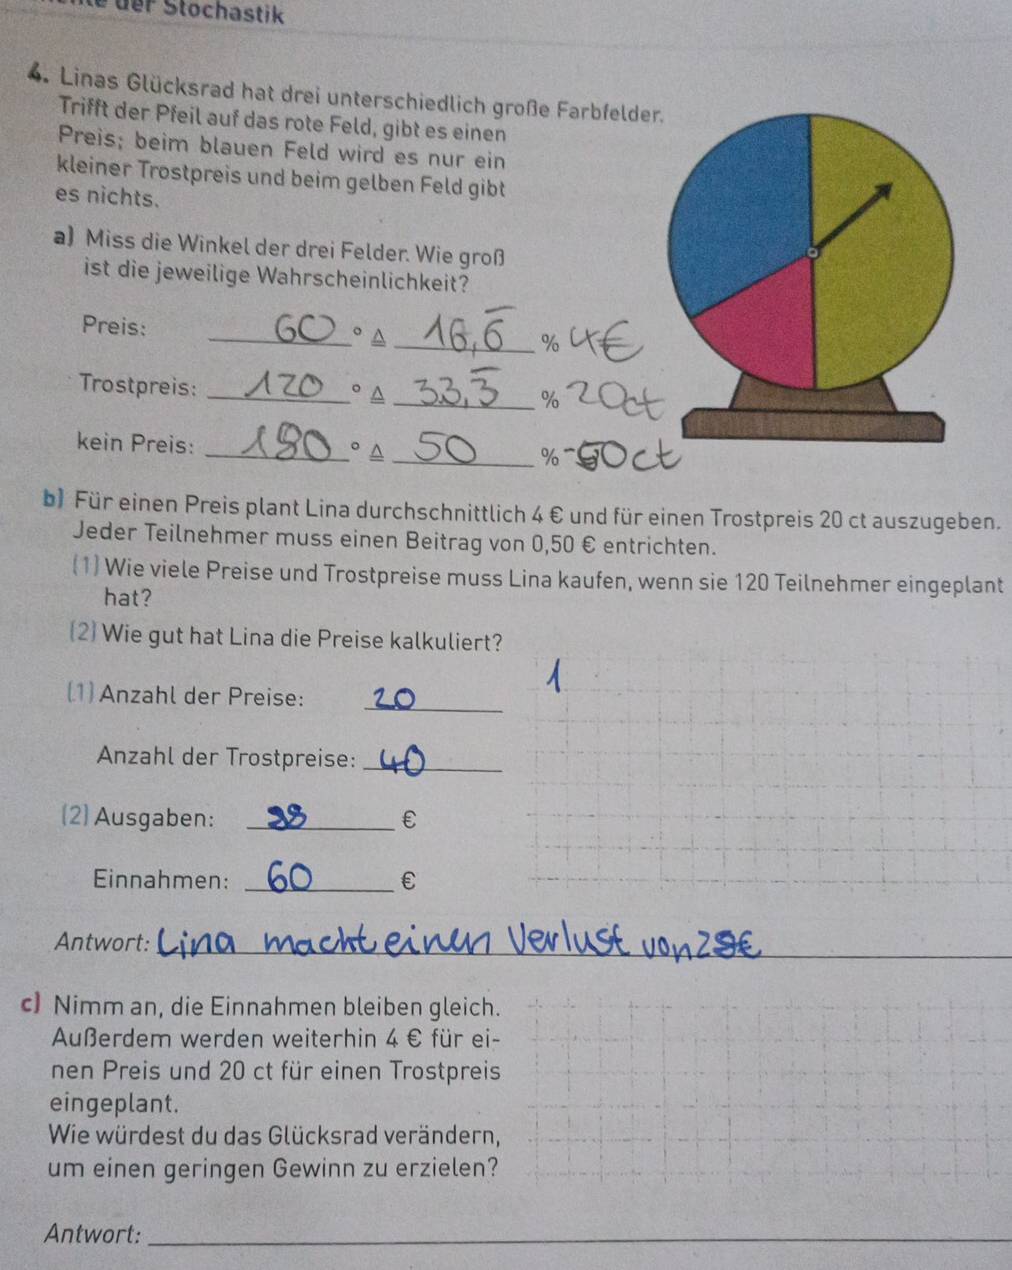 der Stochastik
4. Linas Glücksrad hat drei unterschiedlich große Farbfelder.
Trifft der Pfeil auf das rote Feld, gibt es einen
Preis; beim blauen Feld wird es nur ein
kleiner Trostpreis und beim gelben Feld gibt
es nichts.
a) Miss die Winkel der drei Felder. Wie groß
ist die jeweilige Wahrscheinlichkeit?
Preis: 60 ° ≙ 16,6̅ % 4€
Trostpreis: 120 ° ≙ 33,3̅ % 20ct
kein Preis: 180 ° ≙ 50 % -50ct
b) Für einen Preis plant Lina durchschnittlich 4 € und für einen Trostpreis 20 ct auszugeben.
Jeder Teilnehmer muss einen Beitrag von 0,50 € entrichten.
(1) Wie viele Preise und Trostpreise muss Lina kaufen, wenn sie 120 Teilnehmer eingeplant
hat?
(2) Wie gut hat Lina die Preise kalkuliert?
1
(1) Anzahl der Preise: 20
Anzahl der Trostpreise: 40
(2) Ausgaben: 88 €
Einnahmen: 60 €
Antwort: Lina macht einen Verlust von 28€
c) Nimm an, die Einnahmen bleiben gleich.
Außerdem werden weiterhin 4 € für ei-
nen Preis und 20 ct für einen Trostpreis
eingeplant.
Wie würdest du das Glücksrad verändern,
um einen geringen Gewinn zu erzielen?
Antwort: